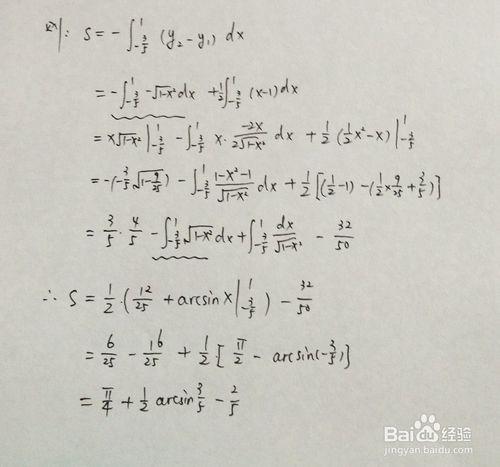 则: S = -∫_{-3/5}^{1} (y₂-y₁) dx
= -∫_{-3/5}^{1} -√(1-x²) dx + 1/2 ∫_{-3/5}^{1} (x-1) dx
= x√(1-x²) |_{-3/5}^{1} - ∫_{-3/5}^{1} x · (-2x)/(2√(1-x²)) dx + 1/2 (1/2 x² - x) |_{-3/5}^{1}
= -(-3/5 √(1-9/25)) - ∫_{-3/5}^{1} (1-x²-1)/√(1-x²) dx + 1/2 [(1/2 - 1) - (1/2 × 9/25 + 3/5)]
= 3/5 · 4/5 - ∫_{-3/5}^{1} √(1-x²) dx + ∫_{-3/5}^{1} dx/√(1-x²) - 32/50
∴ S = 1/2 · (12/25 + arcsin x |_{-3/5}^{1}) - 32/50
= 6/25 - 16/25 + 1/2 [π/2 - arcsin(-3/5)]
= π/4 + 1/2 arcsin 3/5 - 2/5
Baidu经验
jingyan.baidu.com